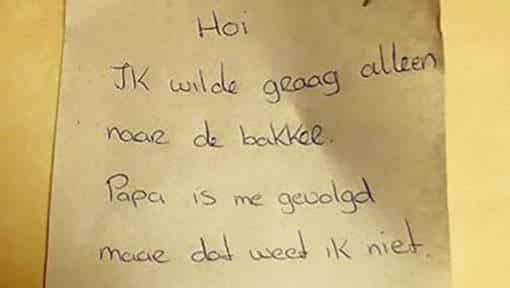 Hoi
IK wilde graag alleen
naar de bakker.
Papa is me gevolgd
maar dat weet ik niet.